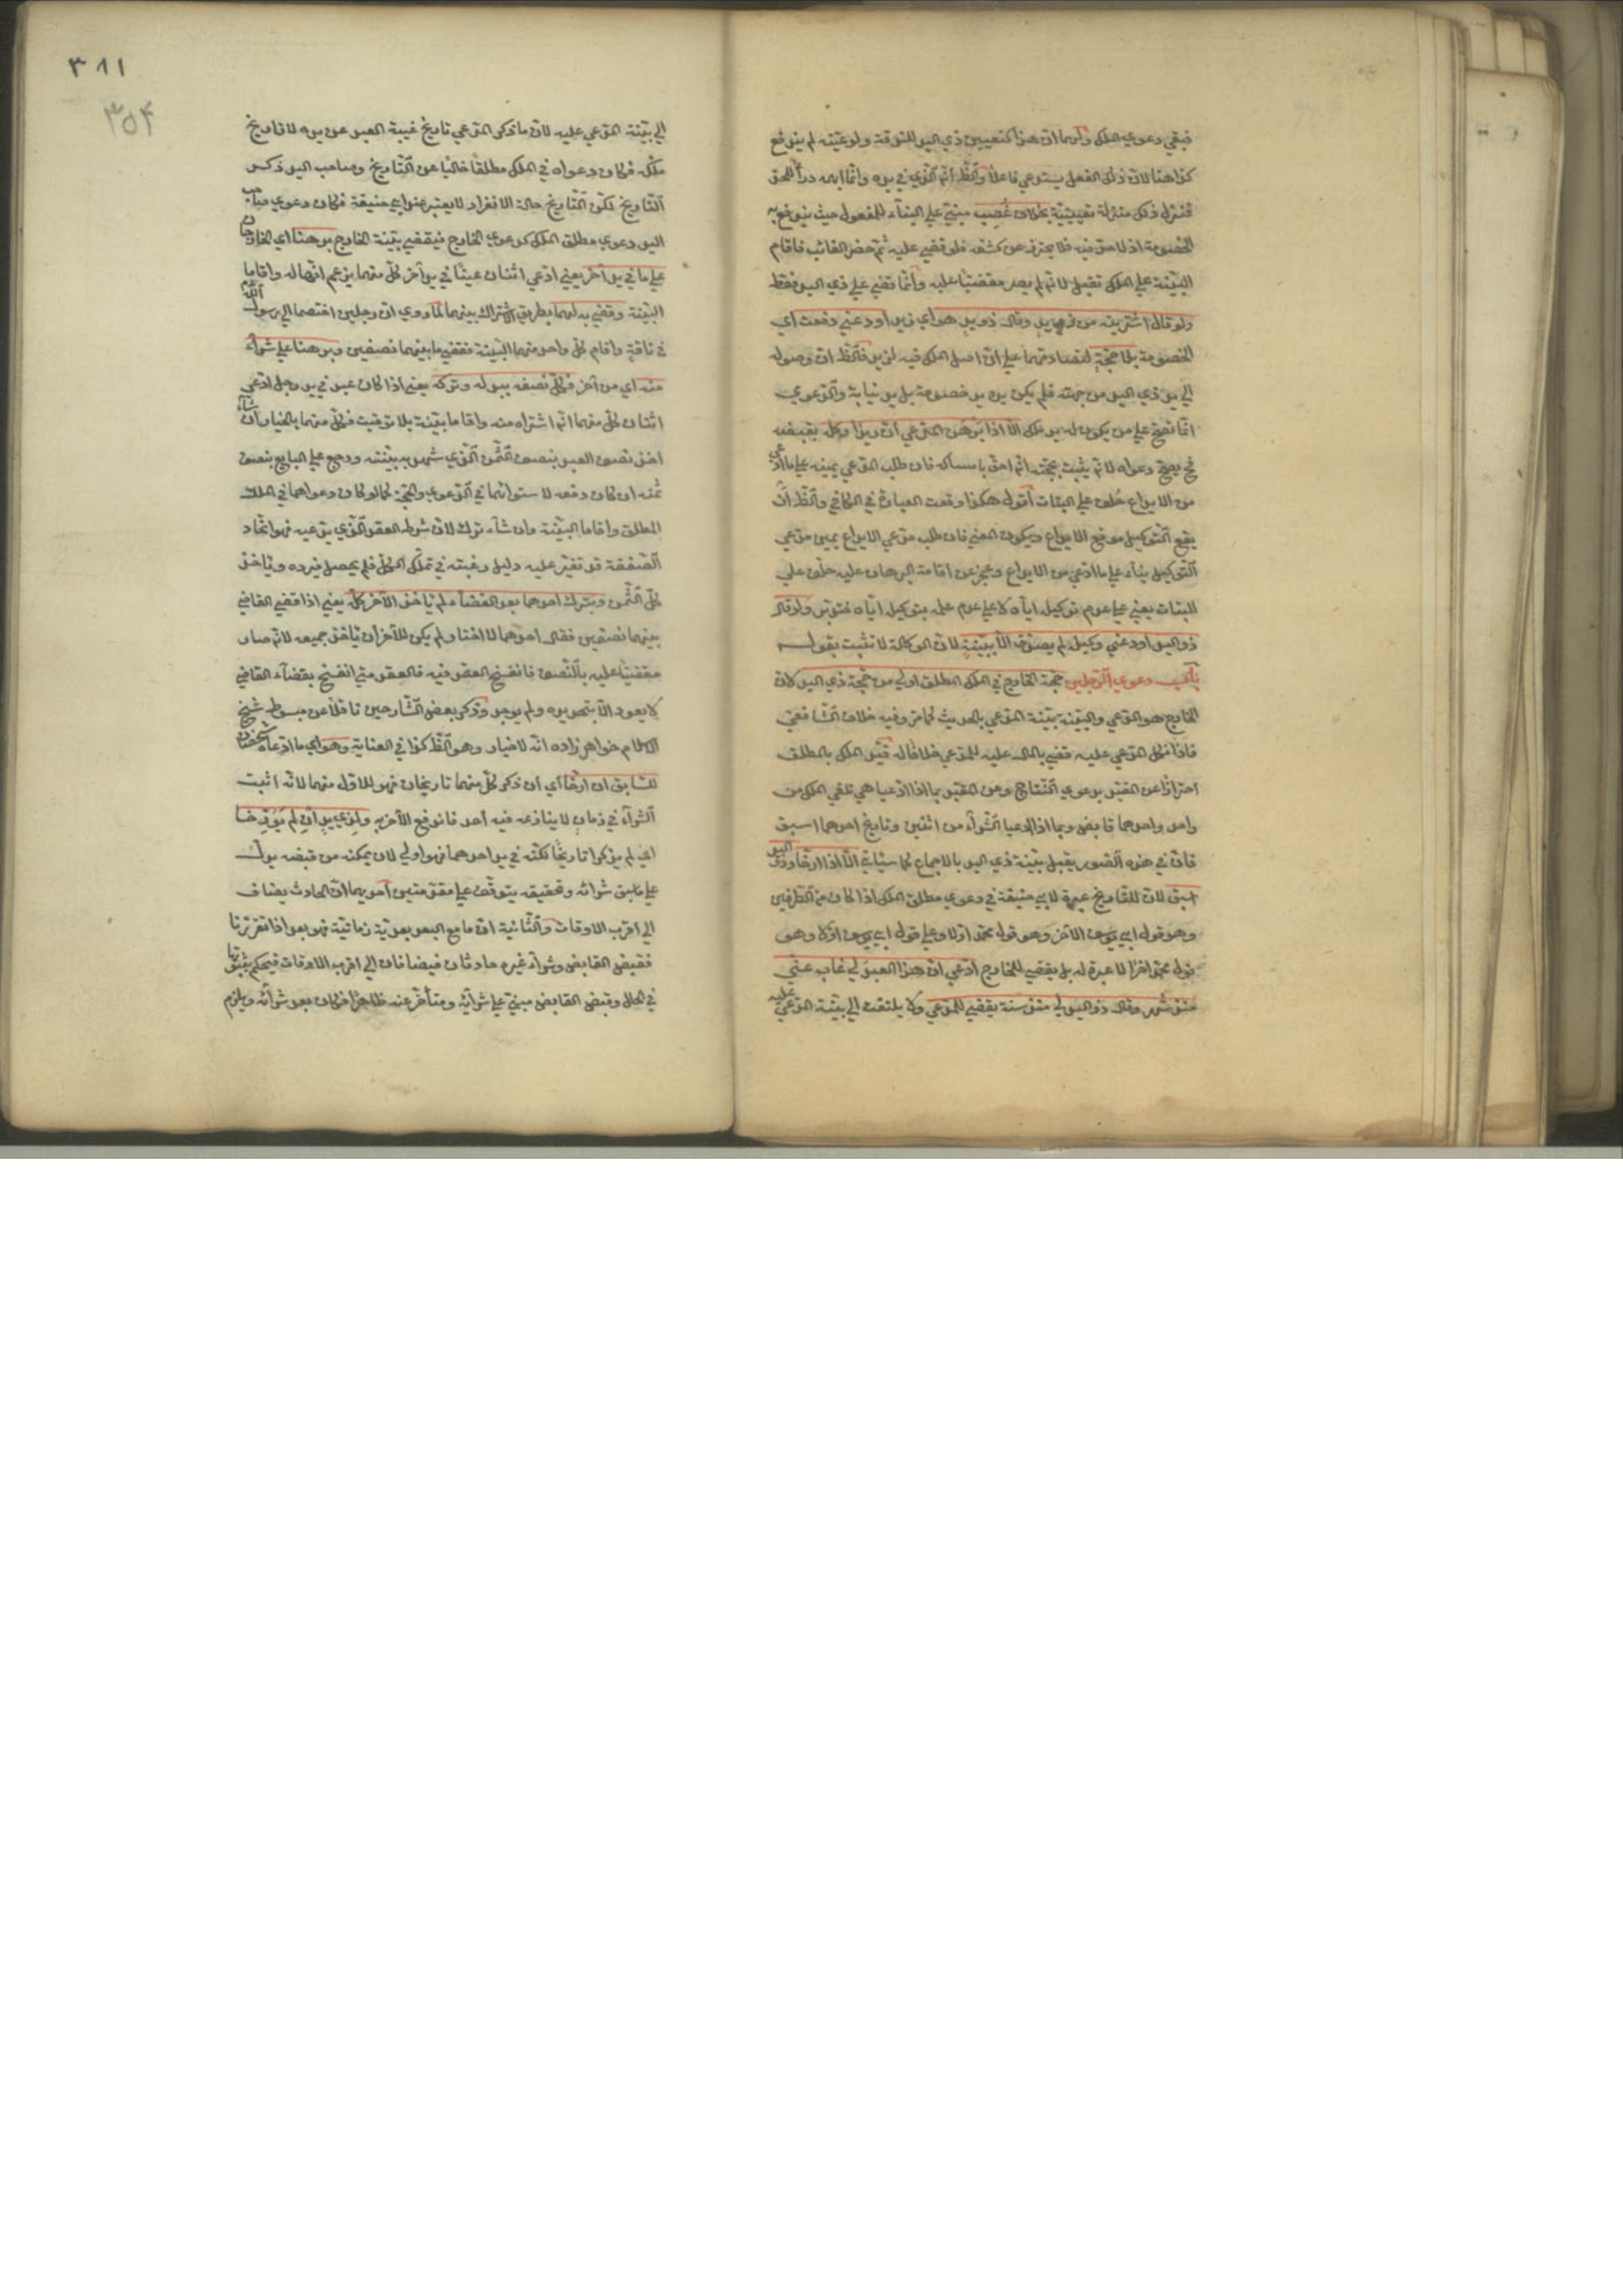 فبقي دعوي الملك ولهما ان هنا كتعيين ذي اليد للشوقة ولو عينه لم يندفع
كذا هنا لان ذكر الفعل يستدعي فاعلا والظ انه الذي في يده وانما ابهم درأ للحد
فنزل ذلك منزلة تعيينه بخلاف غصب مبني علي البناء للمفعول حيث يندفع به
الخصومة اذ لا حد فيه فلا يحترز عن كشفه فلو قضي عليه ثم حضر الغائب فاقام
البينة علي الملك تقبل لانه لم يصر مقضيا عليه وانما قضي علي ذي اليد فقط
ولو قال اشتريته من زيد وقال ذو يد هو اي زيد اودعني دفعت اي
الخصومة بلا حجة لتصادقهما علي ان اصل الملك فيه لزيد فالظ ان وصوله
الي يد ذي اليد من جهته فلم يكن يده يد خصومة بل يد نيابة والدعوي
انما تصح علي من يكون له يد ملك الا اذا برهن المدعي ان زيدا وكله بقبضه
ح يصح دعواه لانه يثبت بحجته انه احق بامساكه فان طلب المدعي يمينه علي ما ادعي
من الايداع حلف علي البتات اقول هكذا وقعت العبارة في الكافي والظ ان
يقع التوكيل موقع الايداع ويكون المعني فان طلب مدعي الايداع يمين مدعي
التوكيل بناء علي ما ادعي من الايداع وعجز عن اقامة البرهان عليه حلف علي
البتات يعني علي عدم توكيل اياه لا علي عدم علمه بتوكيل اياه فتدبر ولو قال
ذو اليد اودعني وكيله لم يصدق الا ببينة لان الوكالة لا تثبت بقوله
باب دعوي الرجلين حجة الخارج في الملك المطلق اولي من حجة ذي اليد لان
الخارج هو المدعي والبينة بينة المدعي بالحديث كما مر وفيه خلاف الشافعي
فاذا نكل المدعي عليه قضي بالمال عليه للمدعي خلافا له قيد الملك بالمطلق
احترازا عن المقيد بدعوي النتاج وعن المقيد بما اذا ادعيا هي تلقي الملك من
واحد واحدهما قابض وبما اذا ادعيا الشراء من اثنين وتاريخ احدهما اسبق
فان في هذه الصور يقبل بينة ذي اليد بالاجماع كما سيأتي الا اذا ارخا وذو اليد
اسبق لان للتاريخ عبرة لابي حنيفة في دعوي مطلق الملك اذا كان من الطرفين
وهو قول ابي يوسف الاخر وهو قول محمد اولا وعلي قول ابي يوسف اولا وهو
قول محمد اخرا لا عبرة له بل يقضي للخارج ادعي ان هذا العبد لي غاب عني
منذ شهر وقال ذو اليد لي منذ سنة يقضي للمدعي ولا يلتفت الي بينة المدعي عليه
٣٨١
٣٥٤
الي بينة المدعي عليه لان ما ذكر المدعي تاريخ غيبة العبد عن يده لا تاريخ
ملكه فكان دعواه في الملك مطلقا خاليا عن التاريخ وصاحب اليد ذكر
التاريخ لكن التاريخ حالة الانفراد لا يعتبر عند ابي حنيفة فكان دعوي صاحب
اليد دعوي مطلق الملك كدعوي الخارج فيقضي ببينة الخارج برهنا اي الخارجان
علي ما في يد آخر يعني ادعي اثنان عينا في يد آخر كل منهما يزعم انها له واقاما
البينة وقضي به لهما بطريق الاشتراك بينهما لما روي ان رجلين اختصما الي رسول الله
في ناقة واقام كل واحد منهما البينة فقضي ما بينهما نصفين وبرهنا علي شراء
منه اي من آخر فلكل نصفه ببدله وتركه يعني اذا كان عبد في يد رجل ادعي
اثنان كل منهما انه اشتراه منه واقاما بينة بلا توقيت فكل منهما بالخيار ان شاء
اخذ نصف العبد بنصف الثمن الذي شهد به بينته ورجع علي البايع بنصف
ثمنه ان كان دفعه لاستوائهما في الدعوي والحجة كما لو كان دعواهما في الملك
المطلق واقاما البينة وان شاء ترك لان شرط العقد الذي يدعيه فهو اتحاد
الصفقة قد تغير عليه دليل رغبته في تملك الكل فلم يحصل فيرده وياخذ
كل الثمن وبترك احدهما بعد القضاء لم ياخذ الآخر كله يعني اذا قضي القاضي
بينهما نصفين فقال احدهما لا اختار لم يكن للآخر ان ياخذ جميعه لانه صار
مقضيا عليه بالنصف فانفسخ العقد فيه فالعقد متي انفسخ بقضاء القاضي
لا يعود الا بتجديده ولم يوجد وذكر بعض الشارحين ناقلا عن مبسوط شيخ
الاسلام خواهر زاده انه لا خيار وهو الظ كذا في العناية وهو اي ما ادعاه شخصان
للسابق ان ارخا اي ان ذكر كل منهما تاريخان فهو للاول منهما لانه اثبت
الشراء في زمان لا ينازعه فيه احد فاندفع الآخر به ولذي يد ان لم يؤرخا
اي لم يذكرا تاريخا لكنه في يد احدهما فهو اولي لان يمكنه من قبضه يدل
علي سبق شرائه وتحقيقه يتوقف علي مقدمتين احديهما ان الحادث يضاف
الي اقرب الاوقات والثانية ان ما مع البعد بعدية زمانية فهو بعد اذا تقررنا
فقبض القابض وشراء غيره حادثان فيضافان الي اقرب الاوقات فيحكم بثبوتها
في الحال وقبض القابض مبني علي شرائه ومتأخر عنه ظاهرا فكان بعد شرائه ويلزم